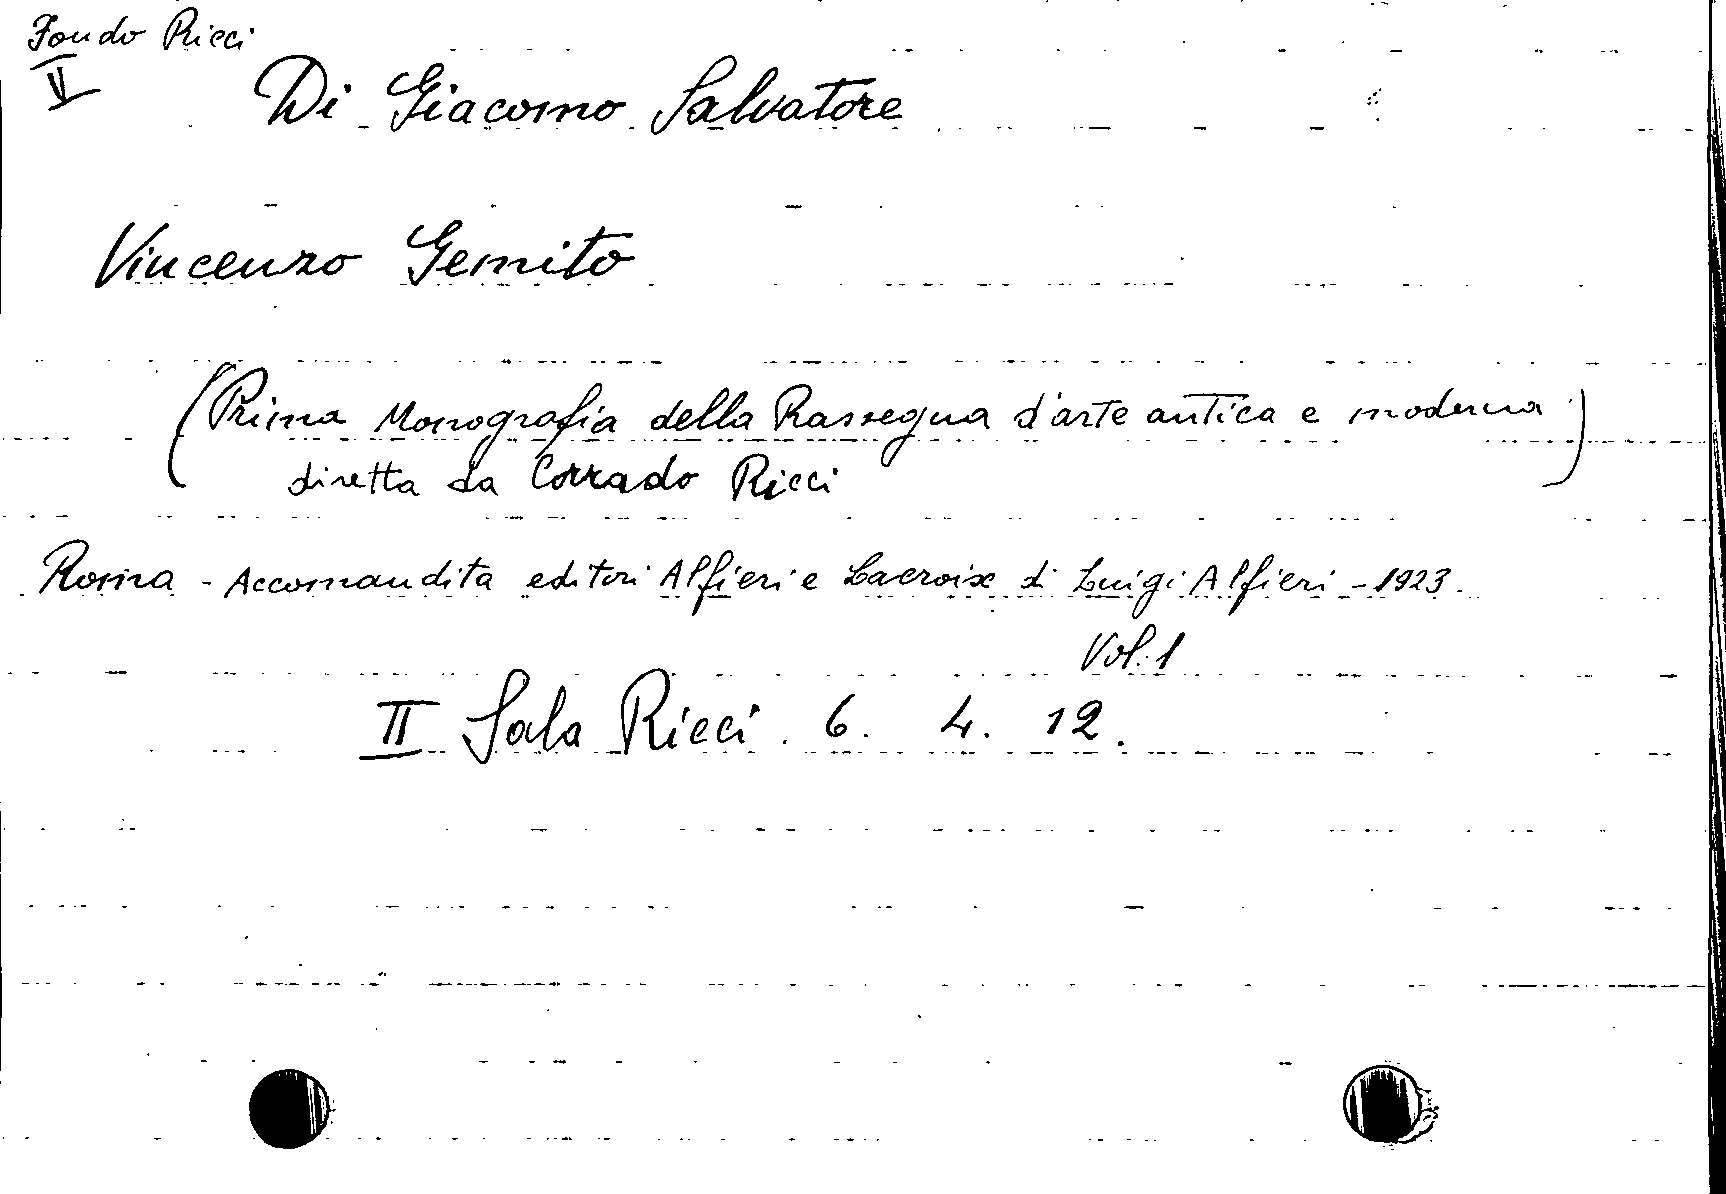 Fondo Ricci
II
Di Giacomo Salvatore
Vincenzo Gemito
(Prima Monografia della Rassegna d'arte antica e moderna
diretta da Corrado Ricci)
Roma - Accomandita editori Alfieri e Lacroix di Luigi Alfieri - 1923.
Vol. 1
II Sala Ricci. 6. 4. 12.